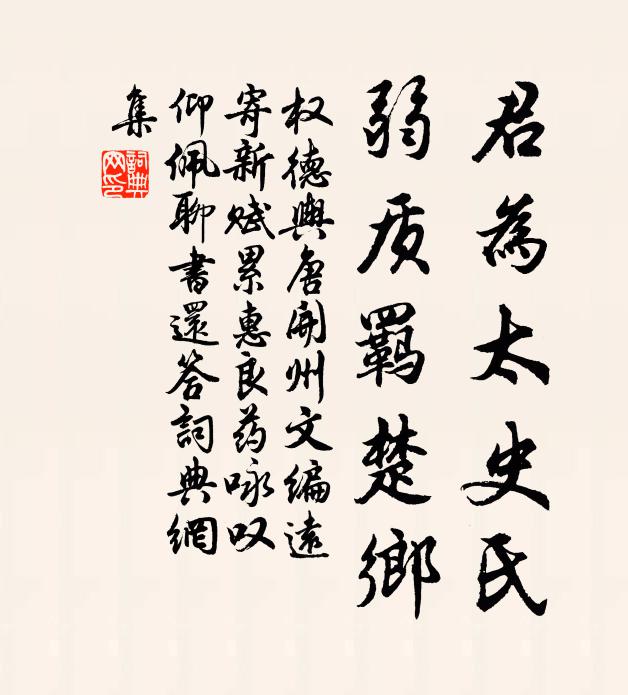 君為太史氏
弱质羁楚鄉
权德輿唐開州文編遠
寄新赋累惠良药咏叹
仰佩聊書還答詞典網
集
詞典網印